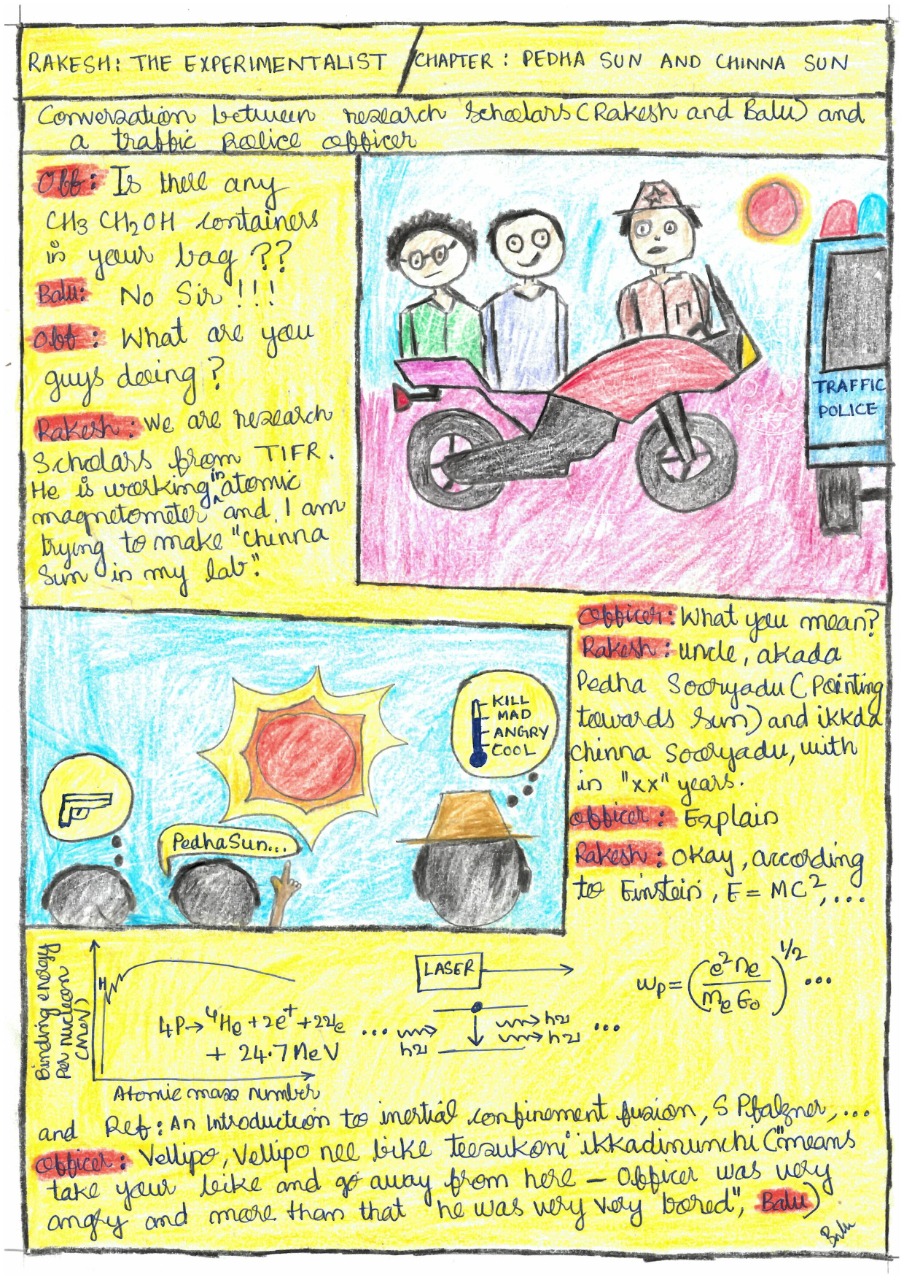 RAKESH: THE EXPERIMENTALIST / CHAPTER : PEDHA SUN AND CHINNA SUN
Conversation between research Scholars (Rakesh and Balu) and
a traffic police officer
Off: Is there any
CH3 CH2OH containers
in your bag ??
Balu: No Sir !!!
Off : What are you
guys doing ?
Rakesh: We are research
Scholars from TIFR.
He is working in atomic
magnetometer and I am
trying to make "Chinna
Sun in my lab".
TRAFFIC
POLICE
KILL
MAD
ANGRY
COOL
PedhaSun...
Officer: What you mean?
Rakesh : Uncle, akada
Pedha Sooryadu (Pointing
towards Sun) and ikkda
chinna Sooryadu, with
in "xx" years.
Officer : Explain
Rakesh : Okay, according
to Einstein, E = MC², ...
Binding energy
Per nucleon
(MeV)
H
4P→ ⁴He + 2e⁺ + 2νe
+ 24.7 MeV
Atomic mass number
LASER
... hν
hν
hν ...
ωp = (e² ne / me ε0)^1/2 ...
and Ref : An Introduction to inertial confinement fusion, S Pfalzner, ...
Officer : Vellipo, Vellipo nee bike teesukoni ikkadinunchi ("means
take your bike and go away from here – Officer was very
angry and more than that "he was very very bored", Balu)
Balu